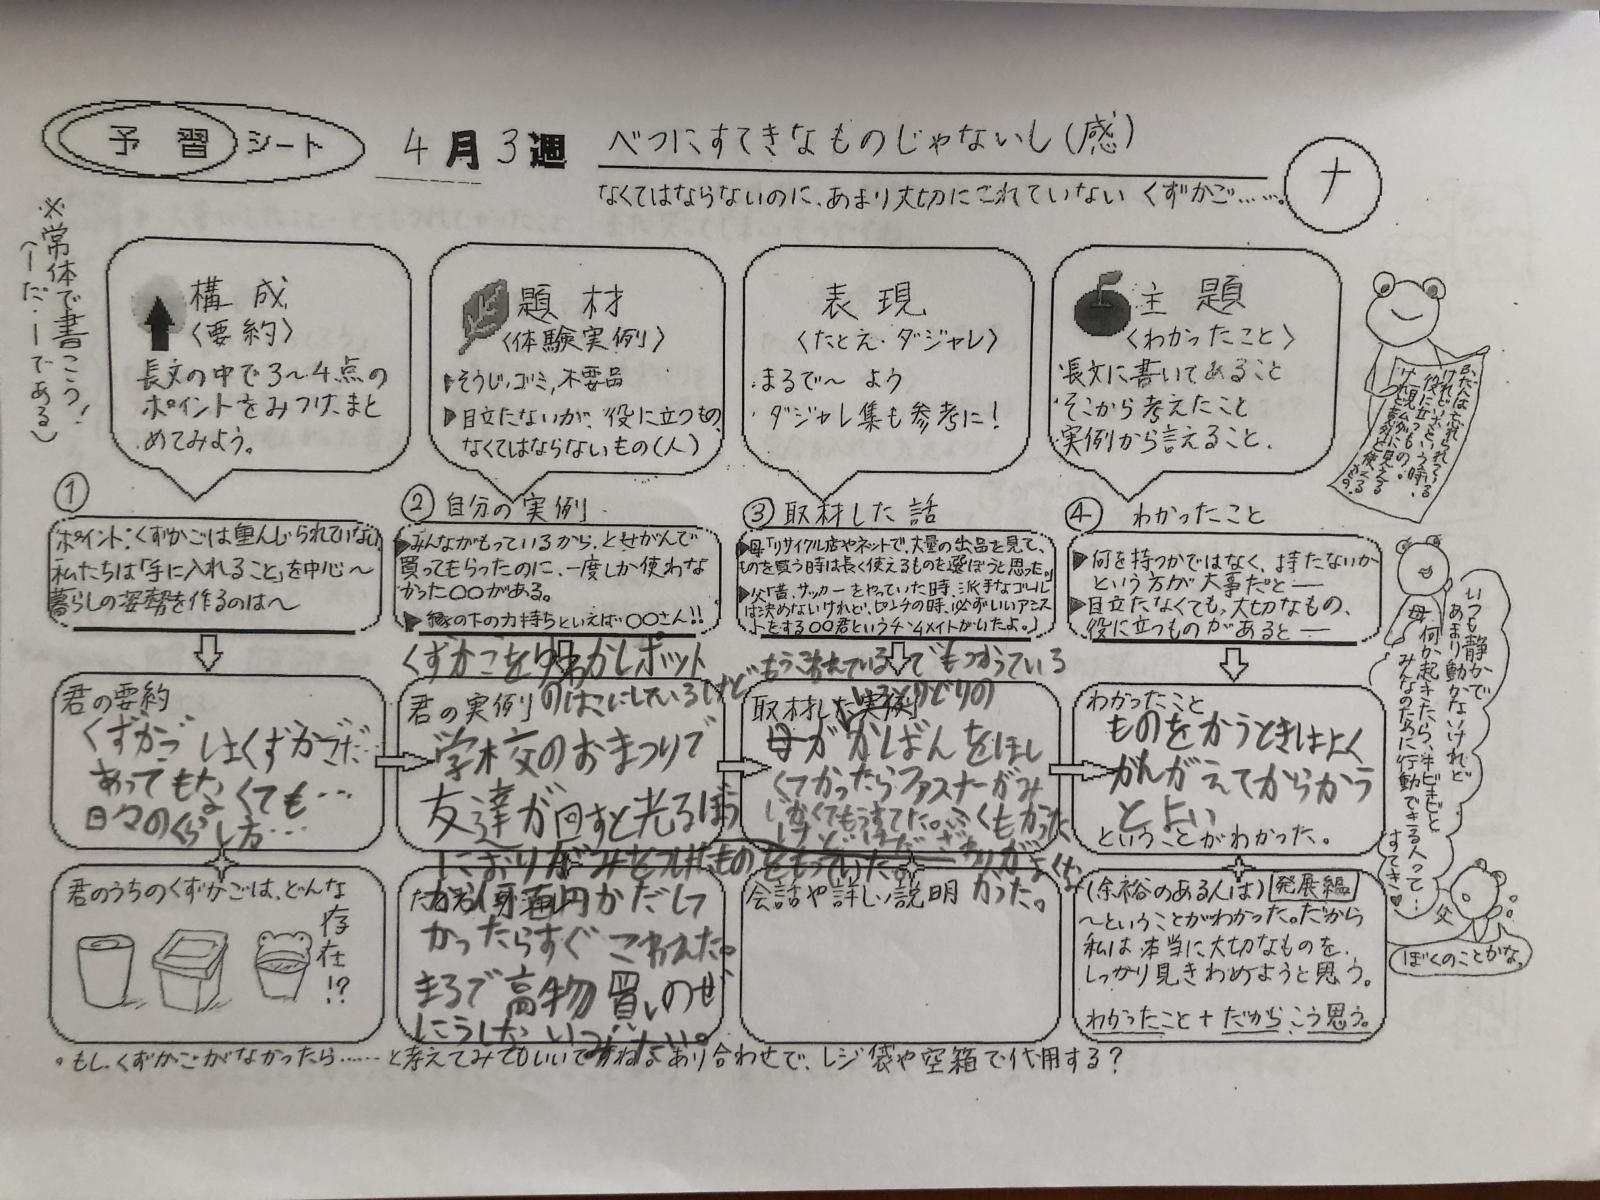 予習シート
4月3週
べつにすてきなものじゃないし(感)
なくてはならないのに、あまり大切にされていない くずかご……。
ナ
※常体で書こう!
(ーだ・ーである)
構成
〈要約〉
長文の中で3〜4点の
ポイントをみつけ、まと
めてみよう。
題材
〈体験実例〉
▶そうじ、ゴミ、不要品
▶目立たないが、役に立つもの
なくてはならないもの(人)
表現
〈たとえ・ダジャレ〉
まるで〜 よう
ダジャレ集も参考に!
主題
〈わかったこと〉
長文に書いてあること
そこから考えたこと
実例から言えること、
ふだんは忘れられている
けれど、いざという時、
役に立つもの。
①
ポイント:くずかごは重んじられていない
私たちは「手に入れること」を中心〜
暮らしの姿勢を作るのは〜
②自分の実例
▶みんながもっているから、とせがんで
買ってもらったのに、一度しか使わな
かった〇〇がある。
▶縁の下の力持ちといえば〇〇さん!!
③取材した話
▶母「リサイクル店やネットで、大量の出品を見て、
ものを買う時は長く使えるものを選ぼうと思った。」
▶父「昔、サッカーをやっていた時、派手なゴールは
決めないけれど、ピンチの時、必ずいいアシス
トをする〇〇君というチームメイトがいたよ。」
④わかったこと
▶何を持つかではなく、持たないか
という方が大事だと―
▶目立たなくても、大切なもの、
役に立つものがあると―
君の要約
くずかごはくずかごだ…
あってもなくても…
日々のくらし方…
くずかごをゆわかしポット
のはこにしているけど
もうこわれている でもつかっている
君の実例
学校のおまつりで
友達が回すと光るぼう
におりがみをつけたものをもっていた。
だしてかったらすぐこわれた。
まるで高物買いのぜ
にうしないみたい。
取材した実例
いろとりどりの
母がかばんをほし
くてかったらファスナーがみ
じかくてもうすてた。ふくもかった
けど はだざわりがよくな
かった。
わかったこと
ものをかうときはよく
かんがえてからかう
とよい
ということがわかった。
君のうちのくずかごは、どんな
存在!?
会話や詳しい説明
(余裕のある人は)発展編
〜ということがわかった。だから
私は本当に大切なものを、
しっかり見きわめようと思う。
わかったこと + だからこう思う。
いつも静かで
あまり動かないけれど
何か起きたら、キビキビと
みんなのために行動できる人って…
すてき♥
母
父
ぼくのことかな。
。もし、くずかごがなかったら……と考えてみてもいいですねよ。あり合わせで、レジ袋や空箱で代用する?